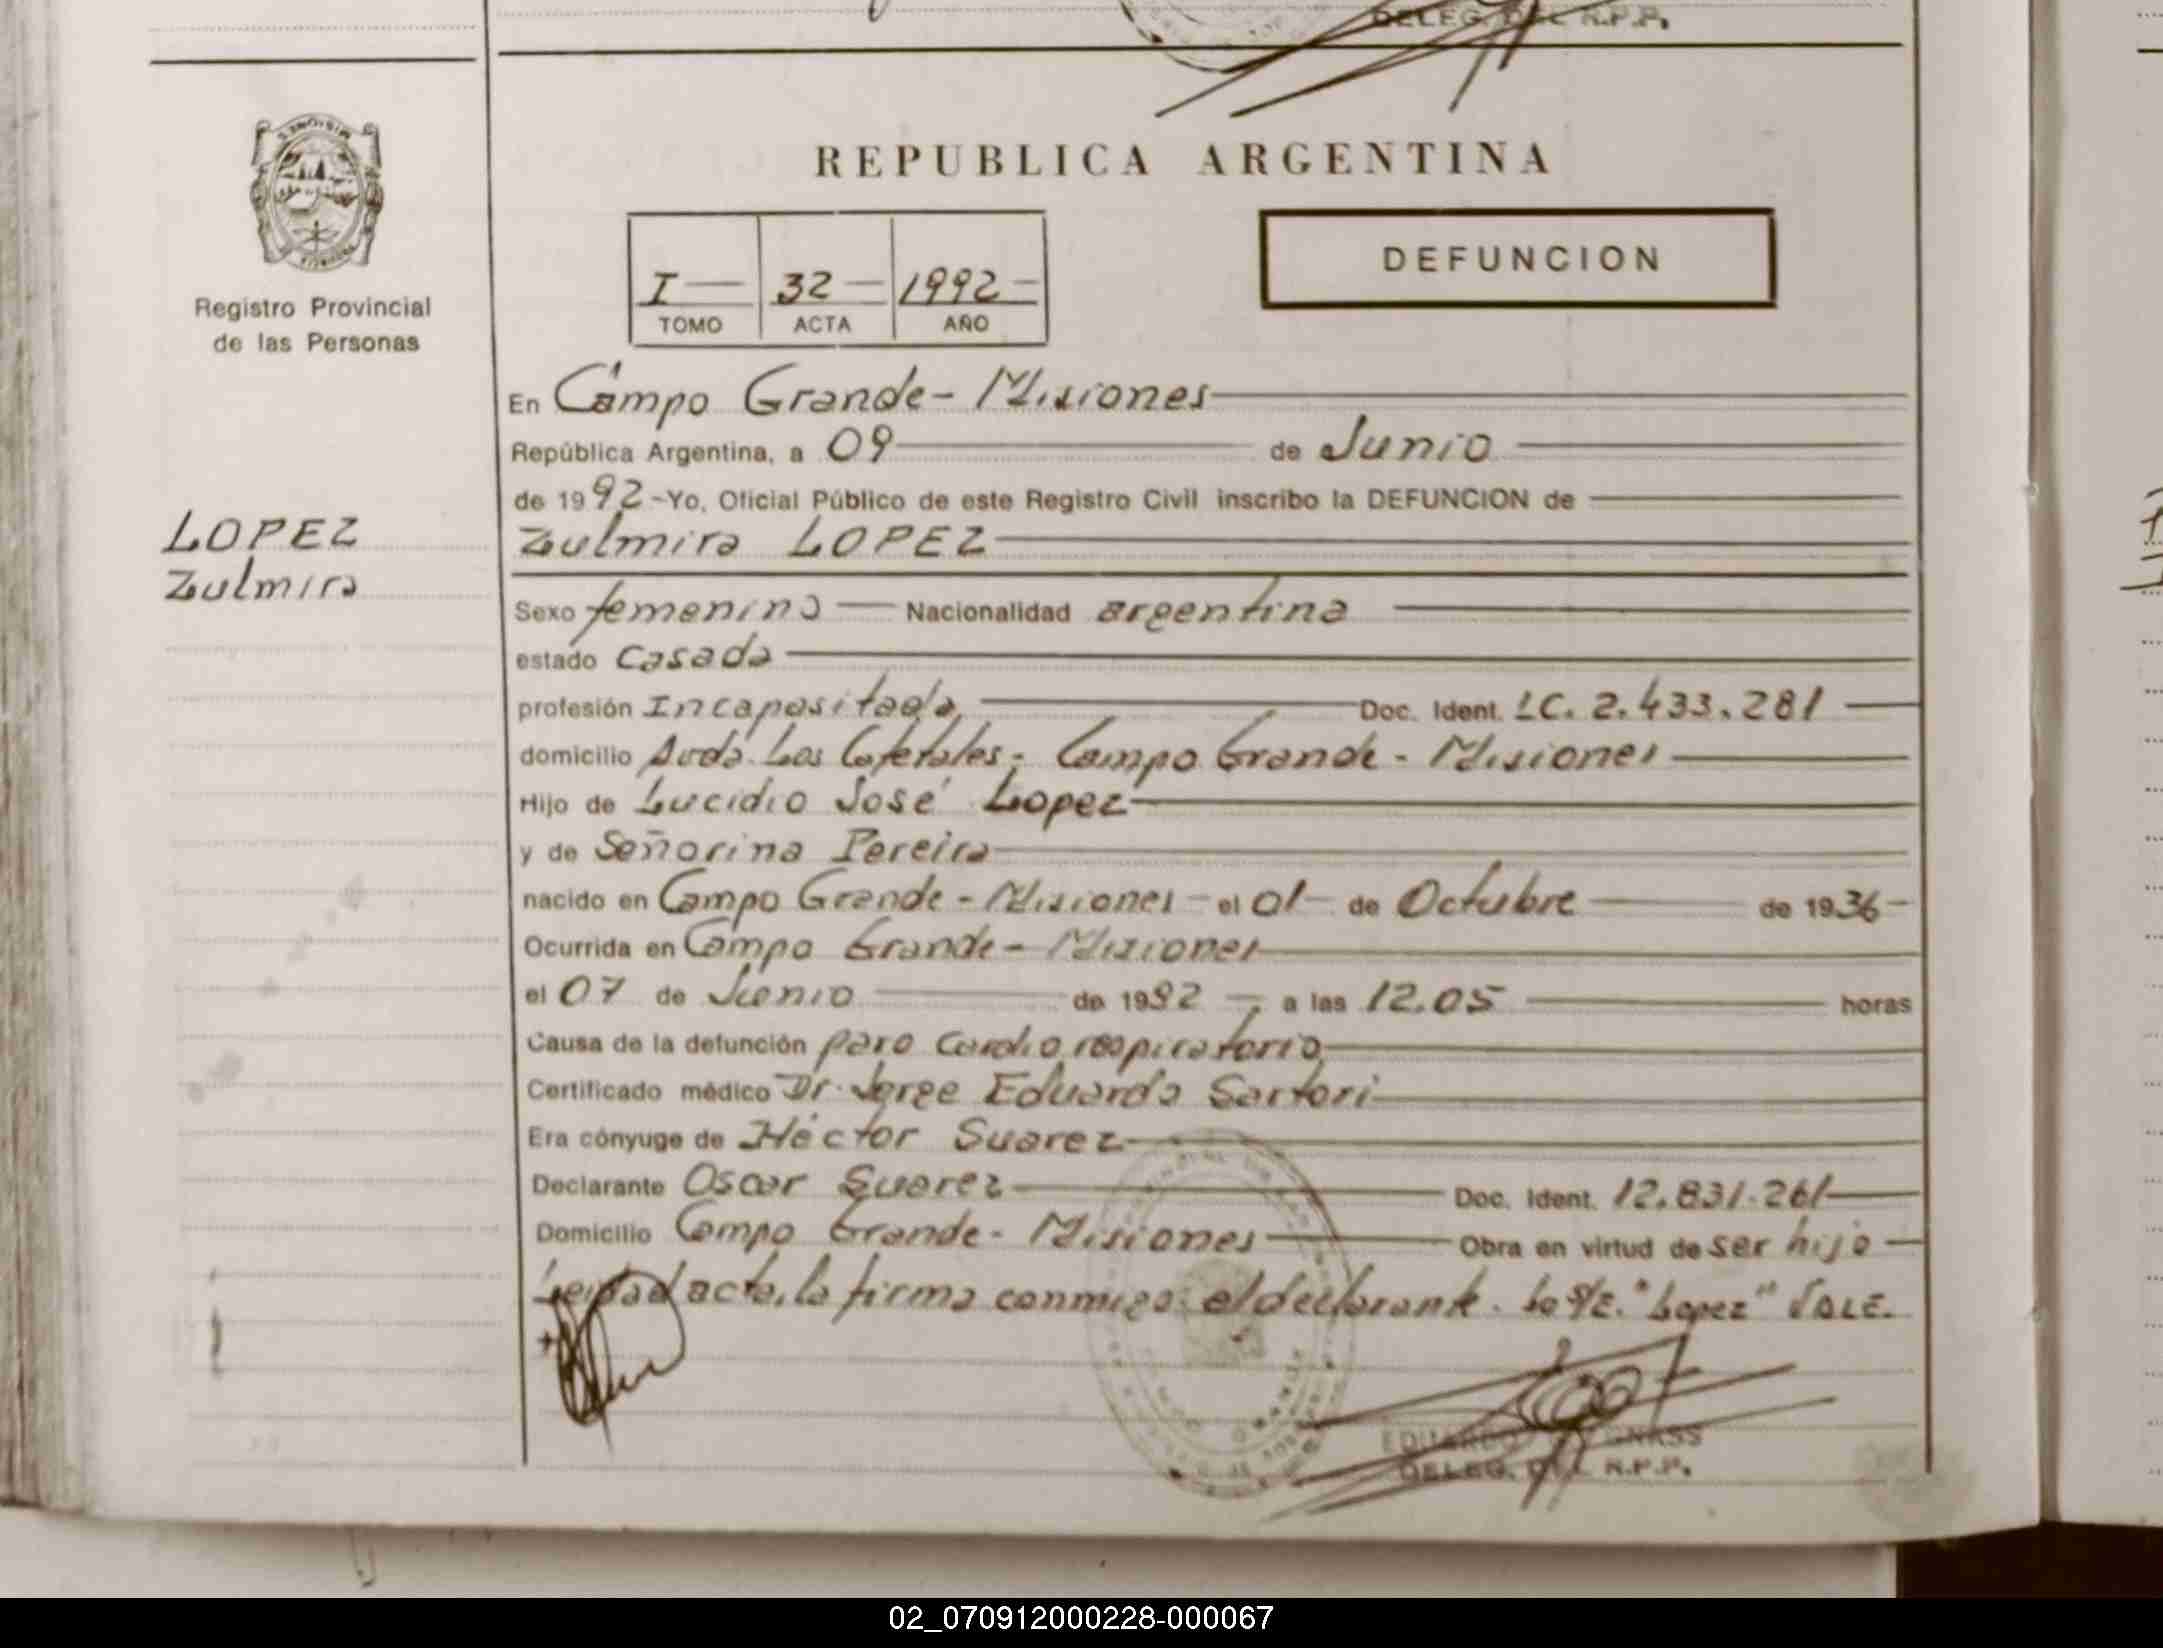 DELEG. DEL R.P.P.
MISIONES
PROVINCIA
Registro Provincial
de las Personas
REPUBLICA ARGENTINA
I — 32 — 1992 —
TOMO ACTA AÑO
DEFUNCION
En Campo Grande - Misiones
República Argentina, a 09 de Junio
de 1992 - Yo, Oficial Público de este Registro Civil inscribo la DEFUNCION de
LOPEZ
Zulmira
Zulmira LOPEZ
Sexo femenino — Nacionalidad argentina
estado casada
profesión Incapasitada Doc. Ident. LC. 2.433.281
domicilio Avda. Los Cafetales - Campo Grande - Misiones
Hijo de Lucidio José Lopez
y de Señorina Pereira
nacido en Campo Grande - Misiones - el 01 - de Octubre de 1936 -
Ocurrida en Campo Grande - Misiones
el 07 de Junio de 1992 - a las 12.05 horas
Causa de la defunción paro cardio respiratorio
Certificado médico Dr. Jorge Eduardo Sartori
Era cónyuge de Héctor Suarez
Declarante Oscar Suarez Doc. Ident. 12.831.261
Domicilio Campo Grande - Misiones Obra en virtud de ser hijo
Leida el acta, la firma conmigo el declarante. Lo S/E. "Lopez" VALE.
EDUARDO
DELEG. DEL R.P.P.
02_070912000228-000067